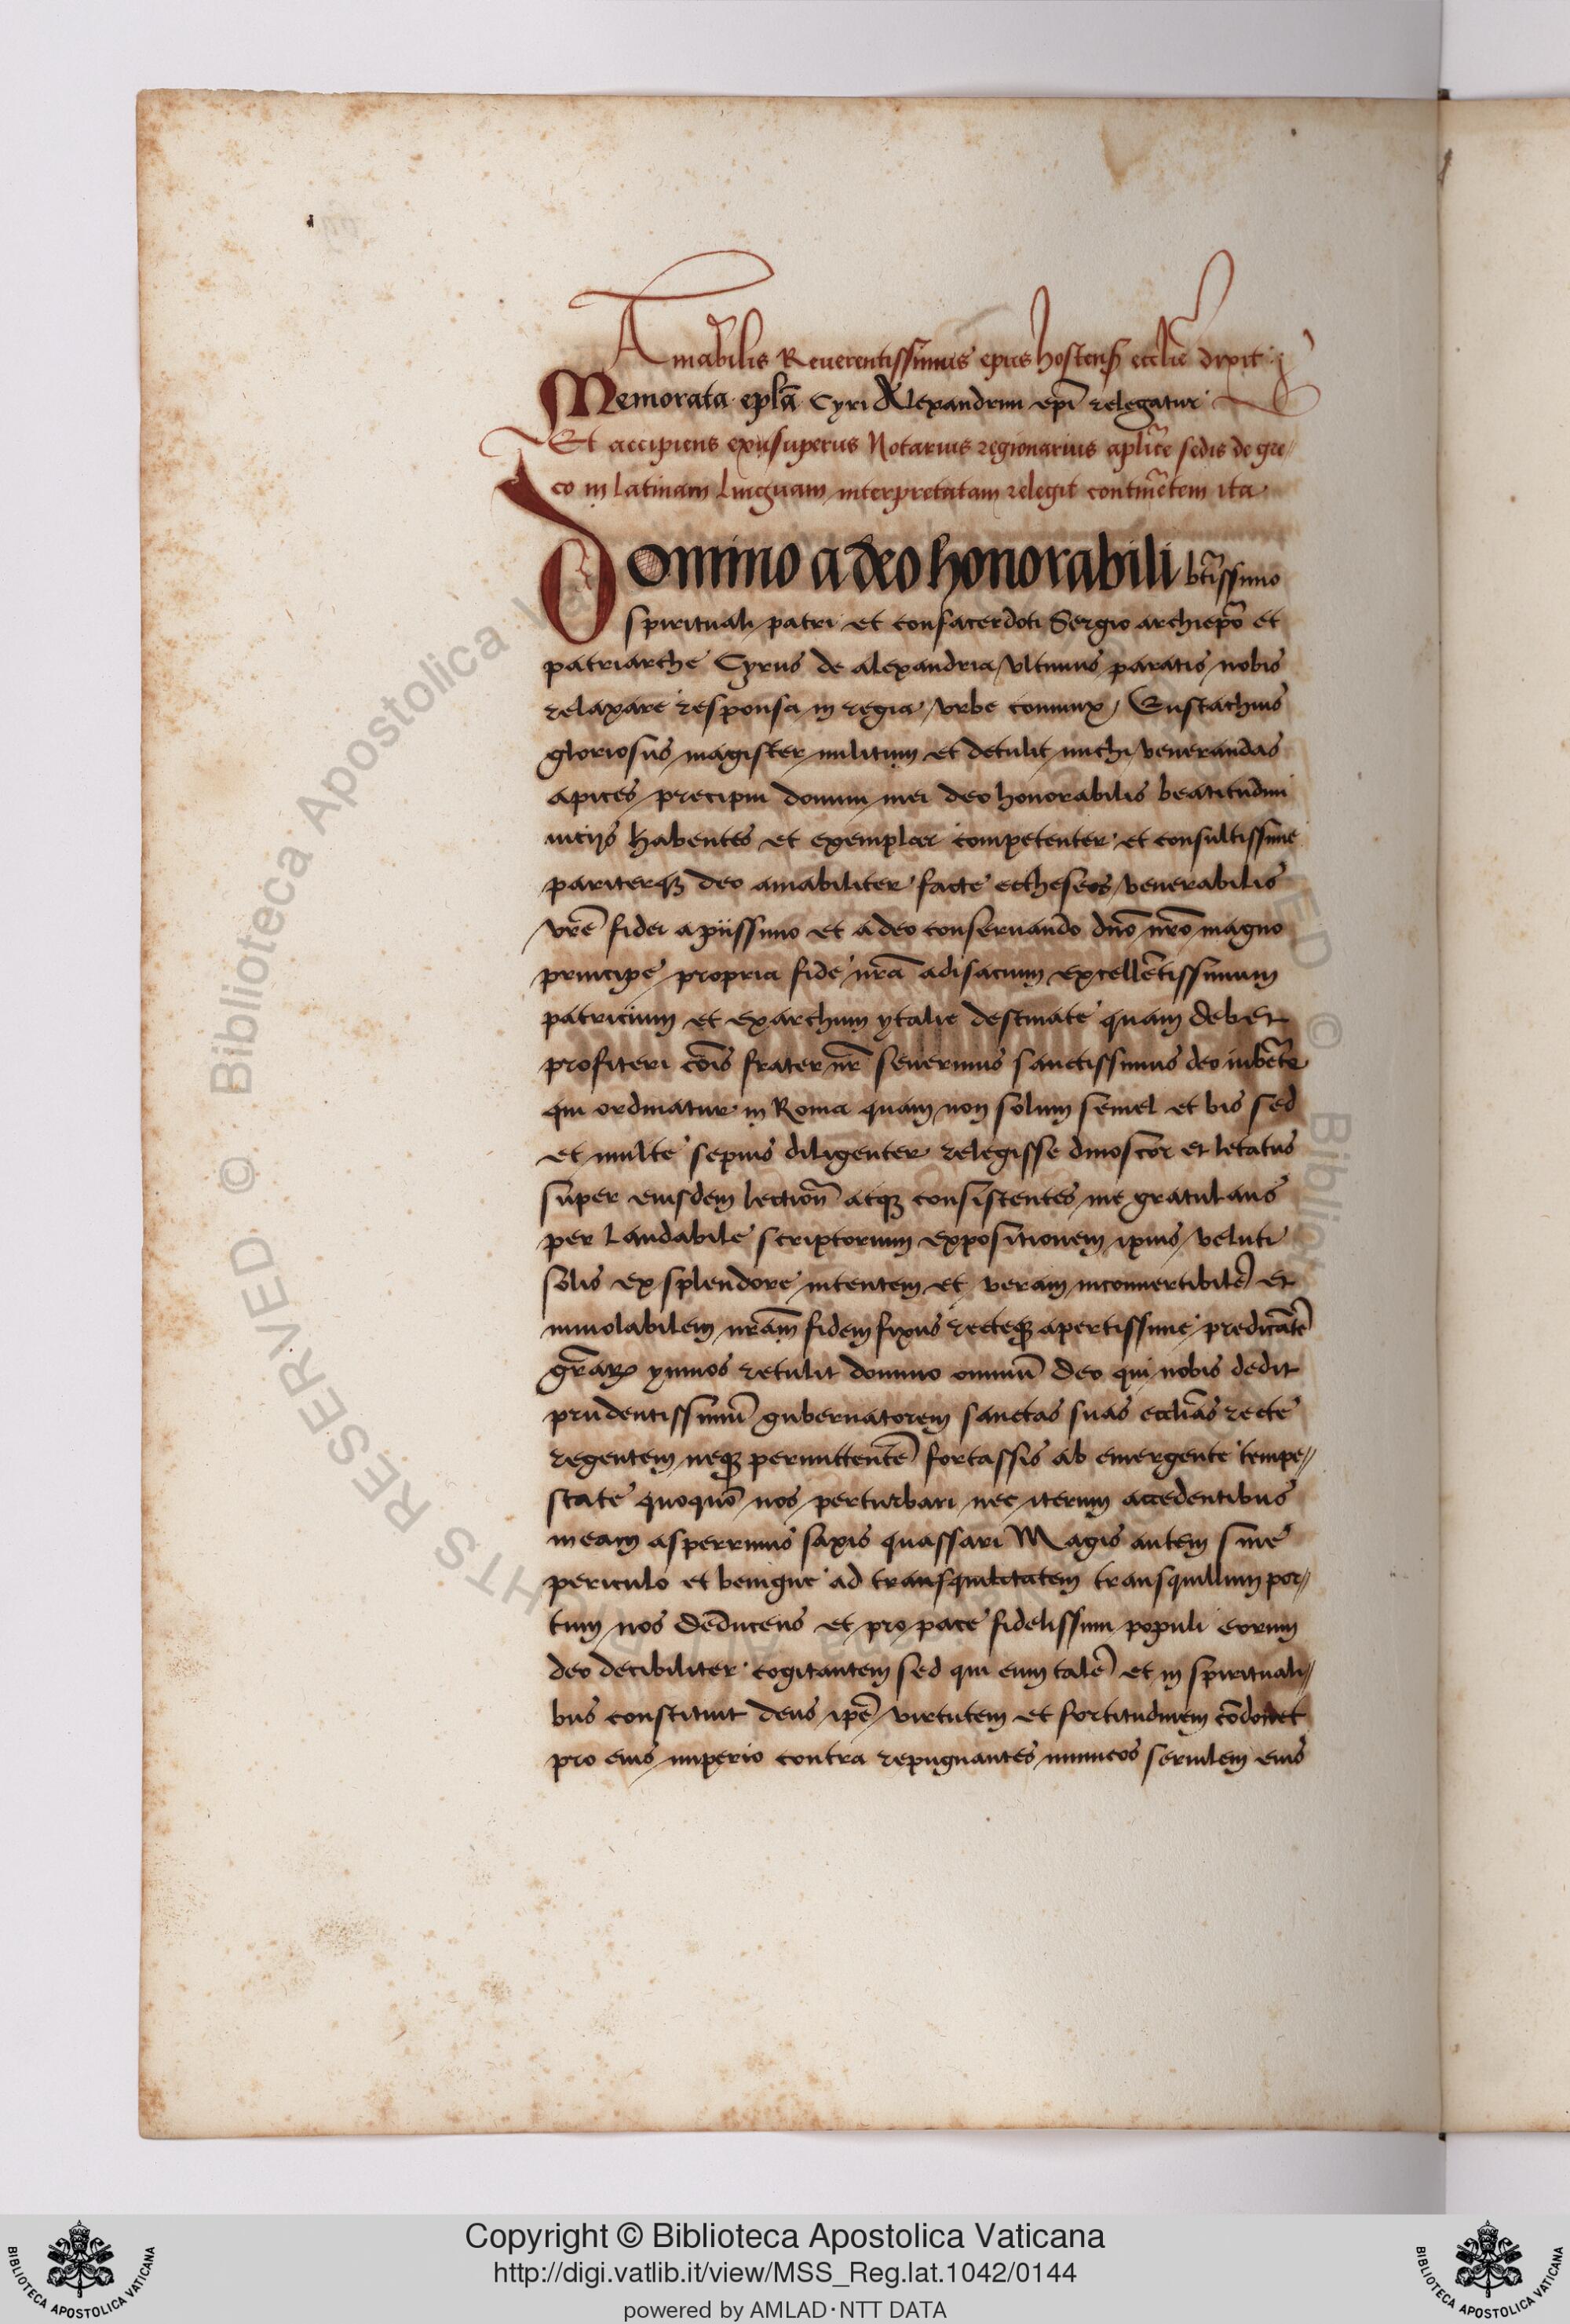 Amabilis Reuerentissimus ep̄us hostens̄ ecclīe dixit
Memorata ep̄la Cyri Alexandrini ep̄i relegatur
Et accipiens exusuperus Notarius regionarius aplīce sedis de gre/
co in latinam linguam interpretatam relegit contine̅tem ita
Domino a deo honorabili bt̄issimo
spirituali patri et consacerdoti Sergio archiep̄o et
patriarche Cyrus de alexandria vltimus paratis nobis
relaxare responsa in regia vrbe coniunx Eustachius
gloriosus magister militum et detulit michi venerandas
apices precipui domini mei deo honorabilis beatitudini
habentes et exemplar competenter et consultissime
pariterqꝫ deo amabiliter facte ectheseos venerabilis
vrē fidei a piissimo et a deo conseruando dn̄o nr̄o magno
principe propria fide nr̄a ad isacium excelle̅tissimum
patricium et exarchum ytalie destinate quam debet
profiteri co̅is frater nr̄ seuerinus sanctissimus deo iube̅te
qui ordinatur in Roma quam non solum semel et bis sed
et multe sepius diligenter relegisse dinoscor et letatus
super eiusdem lection̄ atqꝫ consistentes me gratulans
per laudabile scriptorum expositionem ipius veluti
solis ex splendore intentem et veram inconuertibile̅ et
inuiolabilem nr̄am fidem fixus recteqꝫ apertissime predica̅te̅
gr̄aꝝ ymnos retulit domino omniu̅ deo qui nobis dedit
prudentissimu̅ gubernatorem sanctas suas ecclīas recte
regentem neqꝫ permittente̅ fortassis ab emergente tempe//
state quoquo̅ nos perturbari nec iterum accedentibus
in eam asperrimis saxis quassari Magis autem sine
periculo et benigne ad transquilitatem transquillum por//
tum nos deducens et pro pace fidelissimi populi eorum
deo decibiliter cogitantem sed qui eum tale̅ et in spirituali//
bus constituit deus ip̄e virtutem et fortitudinem co̅donet
pro eius imperio contra repugnantes inimicos seruilem eius
Copyright © Biblioteca Apostolica Vaticana
http://digi.vatlib.it/view/MSS_Reg.lat.1042/0144
powered by AMLAD·NTT DATA
BIBLIOTECA APOSTOLICA VATICANA
BIBLIOTECA APOSTOLICA VATICANA